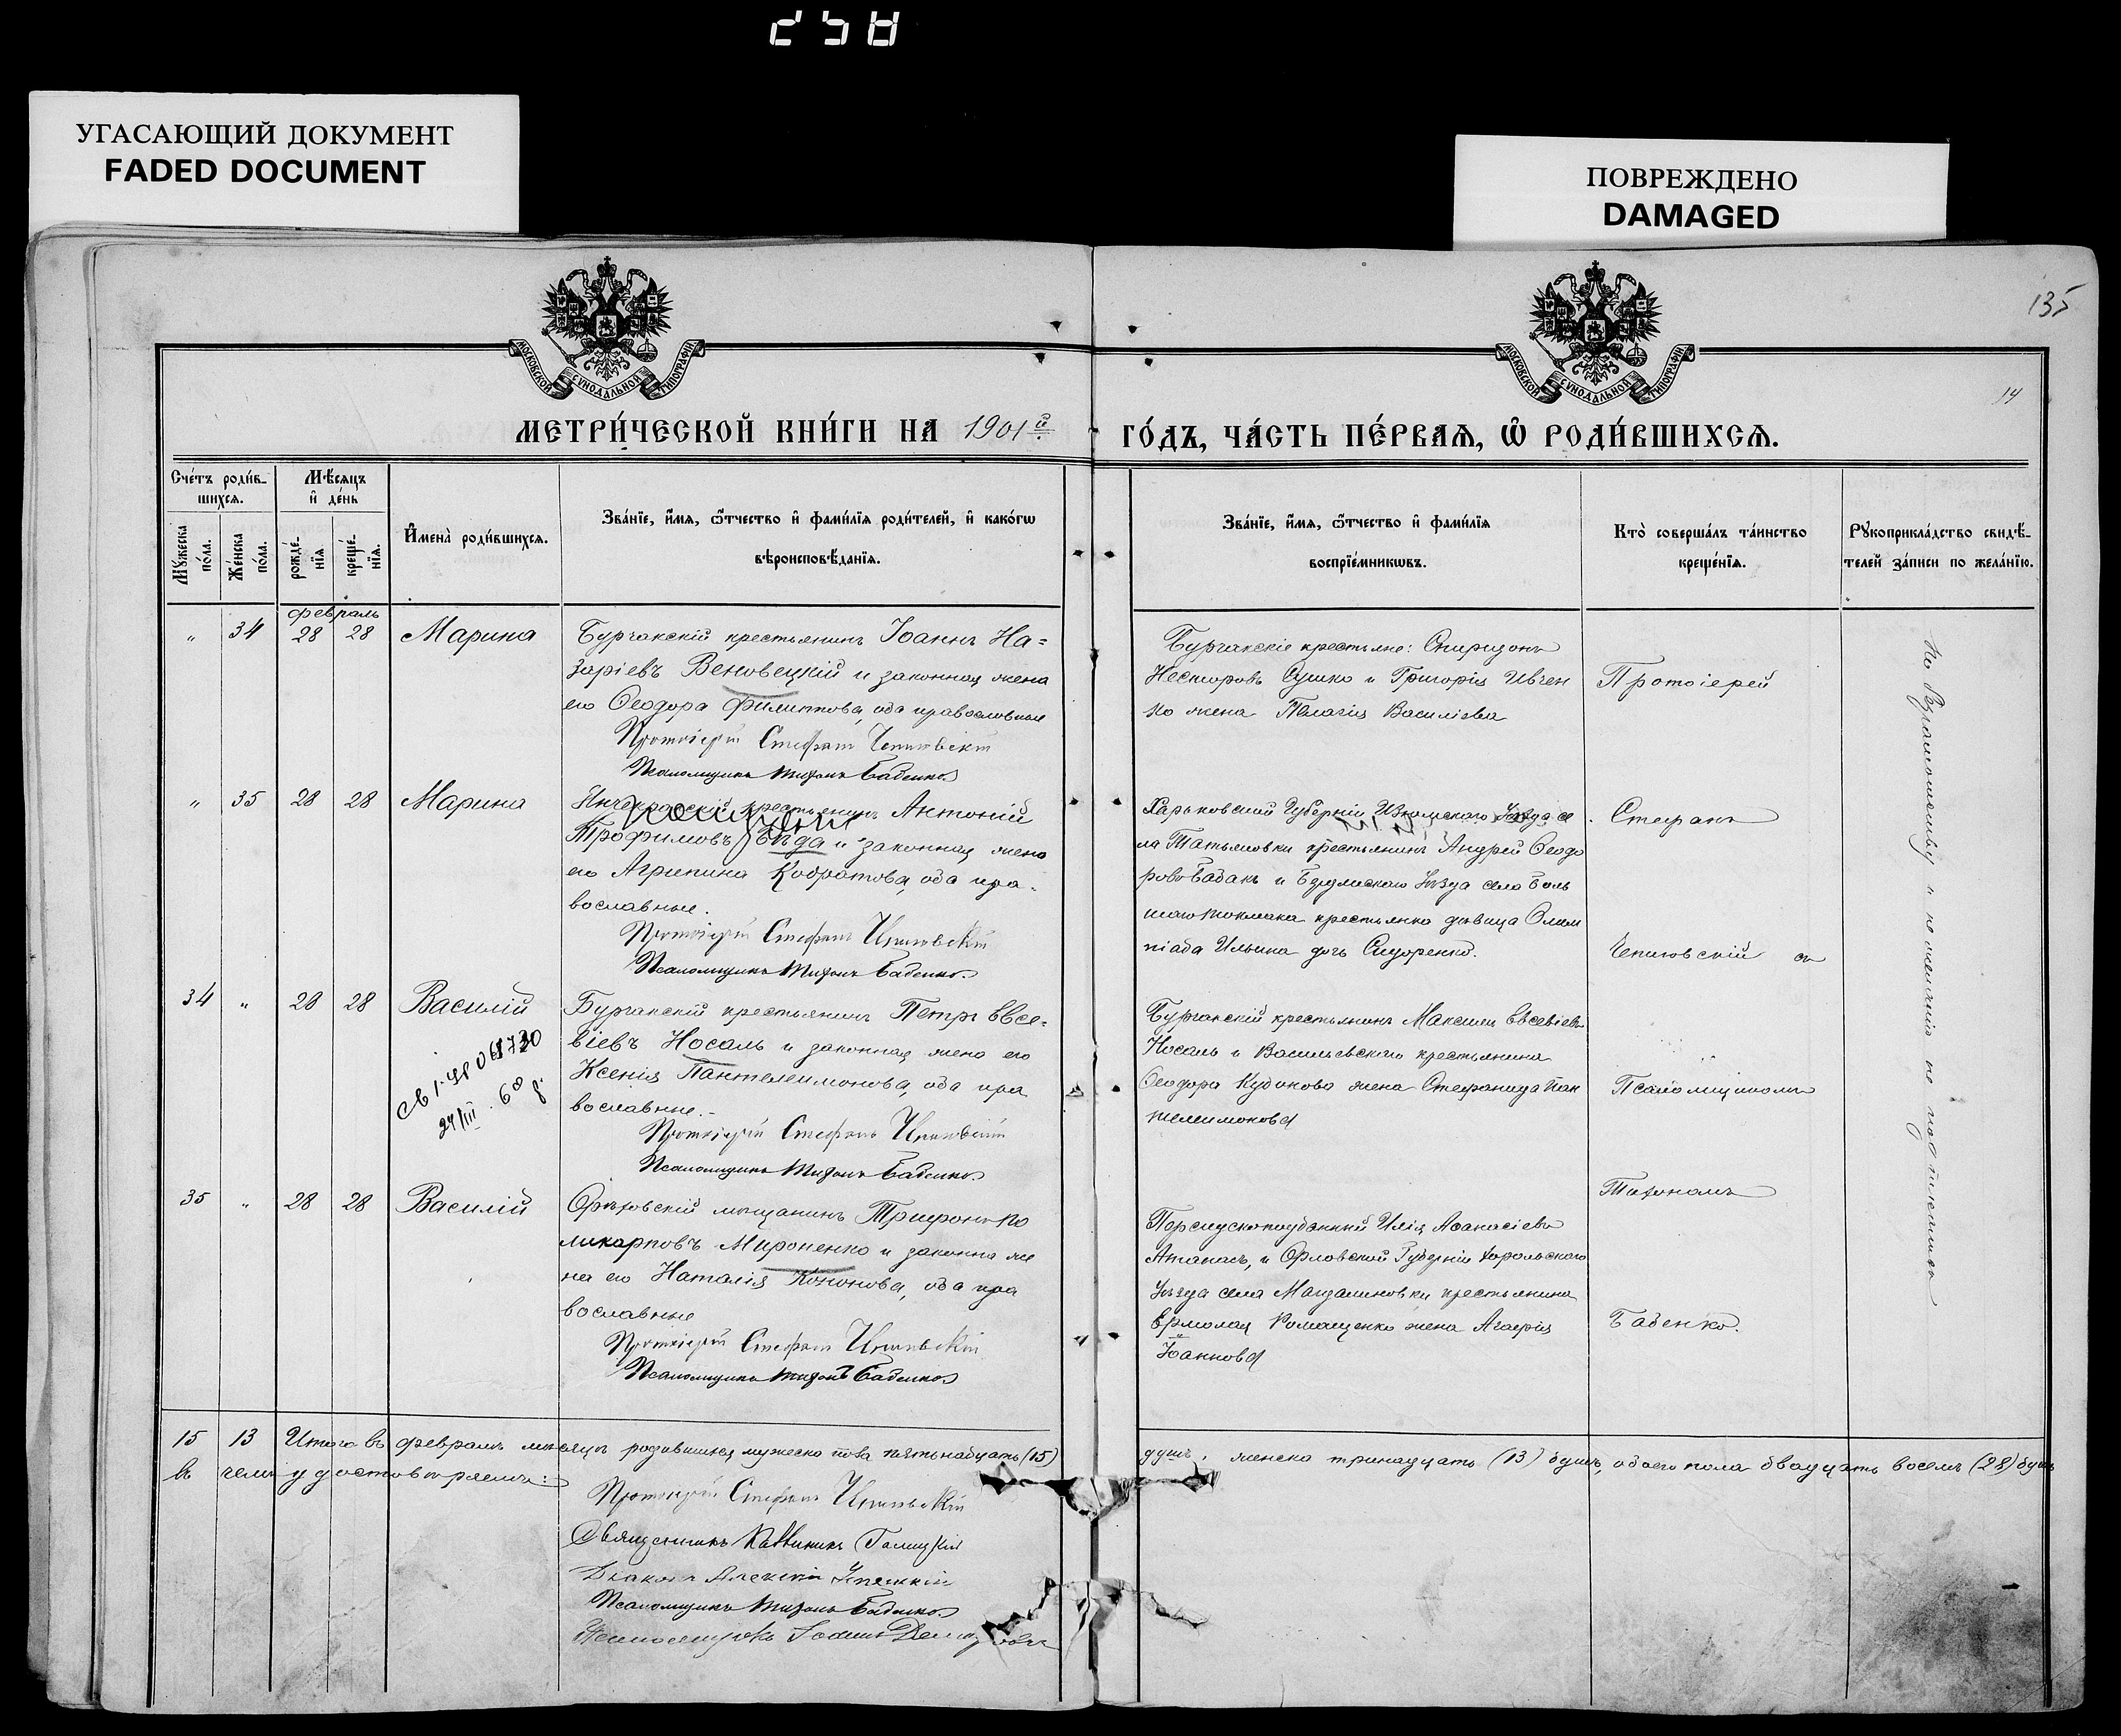 258
УГАСАЮЩИЙ ДОКУМЕНТ
FADED DOCUMENT
ПОВРЕЖДЕНО
DAMAGED
135
14
МОСКОВСКОЙ СѴНОДАЛЬНОЙ ТИПОГРАФІИ
МОСКОВСКОЙ СѴНОДАЛЬНОЙ ТИПОГРАФІИ
МЕТРИ́ЧЕСКОЙ КНИ́ГИ НА 1901й
ГО́ДЪ, ЧА́СТЬ ПЕ́РВАѦ, Ѡ҆ РОДИ́ВШИХСѦ.
Сче́тъ роди́в-
шихсѧ.
Мꙋ́жеска по́ла.
Же́нска по́ла.
Мѣ́сѧцъ
и҆ де́нь
рожде́-
нїѧ
креще́-
нїѧ.
И҆мена̀ роди́вшихсѧ.
Зва́нїе, и҆́мѧ, ѻ҆́тчество и҆ фами́лїѧ роди́телей, и҆ како́гѡ
вѣроисповѣ́данїѧ.
Зва́нїе, и҆́мѧ, ѻ҆́тчество и҆ фами́лїѧ
воспрїе́мникѡвъ.
Кто̀ соверша́лъ та́инство
креще́нїѧ.
Рꙋкоприкла́дство свидѣ́-
телей за́писи по жела́нїю.
февраль
" 34 28 28 Марина
Бурчакскій крестьянинъ Іоаннъ На=
заріевъ Веновецкій и законная жена
его Ѳеодора Филиппова, оба православные
Протоіерей Стефанъ Чепиговскій
Псаломщикъ Тихонъ Бабенко
Бурчакскіе крестьяне: Спиридонъ
Несторовъ Сушко и Григорія Ивчен
ко жена Пелагія Василіева
Протоіерей
" 35 28 28 Марина
крестьянинъ Антоній
Трофимовъ Бѣда и законная жена
его Агрипина Кодратова, оба пра-
вославные.
Протоіерей Стефанъ Чепиговскій
Псаломщикъ Тихонъ Бабенко
Харьковской Губерніи Изюмскаго Уѣзда се
ла Татьяновки крестьянинъ Андрей Ѳеодо
ровъ Бабакъ и Бердянскаго Уѣзда села Боль
шаго Токмака крестьянка дѣвица Олим
піада Ильина дочь Сидоренко.
Стефанъ
Чепиговскій съ
34 " 28 28 Василій
27/III 68 г.
Бурчакскій крестьянинъ Петръ Евсе-
віевъ Носаль и законная жена его
Ксенія Пантелеимонова, оба пра
вославные.-
Протоіерей Стефанъ Чепиговскій
Псаломщикъ Тихонъ Бабенко
Бурчакскій крестьянинъ Максимъ Евсевіевъ
Носаль и Васильевскаго крестьянина
Ѳеодора Кудокова жена Стефанида Пан
телеимонова
Псаломщикомъ
35 " 28 28 Василій
Орѣховскій мѣщанинъ Трифонъ По
ликарповъ Мироненко и законна же
на его Наталія Кононова, оба пра
вославные
Протоіерей Стефанъ Чепиговскій
Псаломщикъ Тихонъ Бабенко
Персидскоподданный Илія Аѳанасіевъ
Атанасъ, и Орловской Губерніи
Уѣзда села Магдалиновки крестьянина
Ермолая Ромащенко жена Агафія
Іоаннова
Тихономъ
Бабенко.
По безграмотству и по желанію не подписались
15 13 Итого въ февралѣ мѣсяцѣ родившихся мужеска пола пятьнадцать (15)
душъ, женска тринадцать (13) душъ, обоего пола двадцать восемь (28) душъ
въ чемъ удостовѣряемъ:
Протоіерей Стефанъ Чепиговскій
Священникъ Каллиникъ Галицкій
Діаконъ Алексій
Псаломщикъ Тихонъ Бабенко
Псаломщикъ Іоаннъ